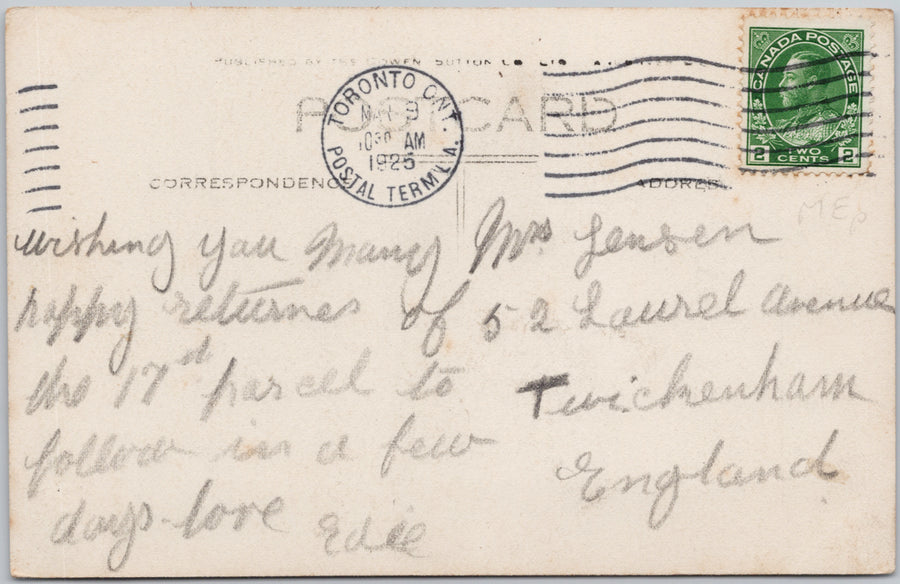 PUBLISHED BY THE GOWEN SUTTON CO. LTD.
POST CARD
TORONTO ONT.
9
1030 AM
1925
POSTAL TERM'L A.
CANADA POSTAGE
2 TWO CENTS 2
CORRESPONDENCE
ADDRESS
wishing you many
happy returnes of
the 17d parcel to
follow in a few
days love
Edie
Mrs Jensen
52 Laurel Avenue
Twickenham
England